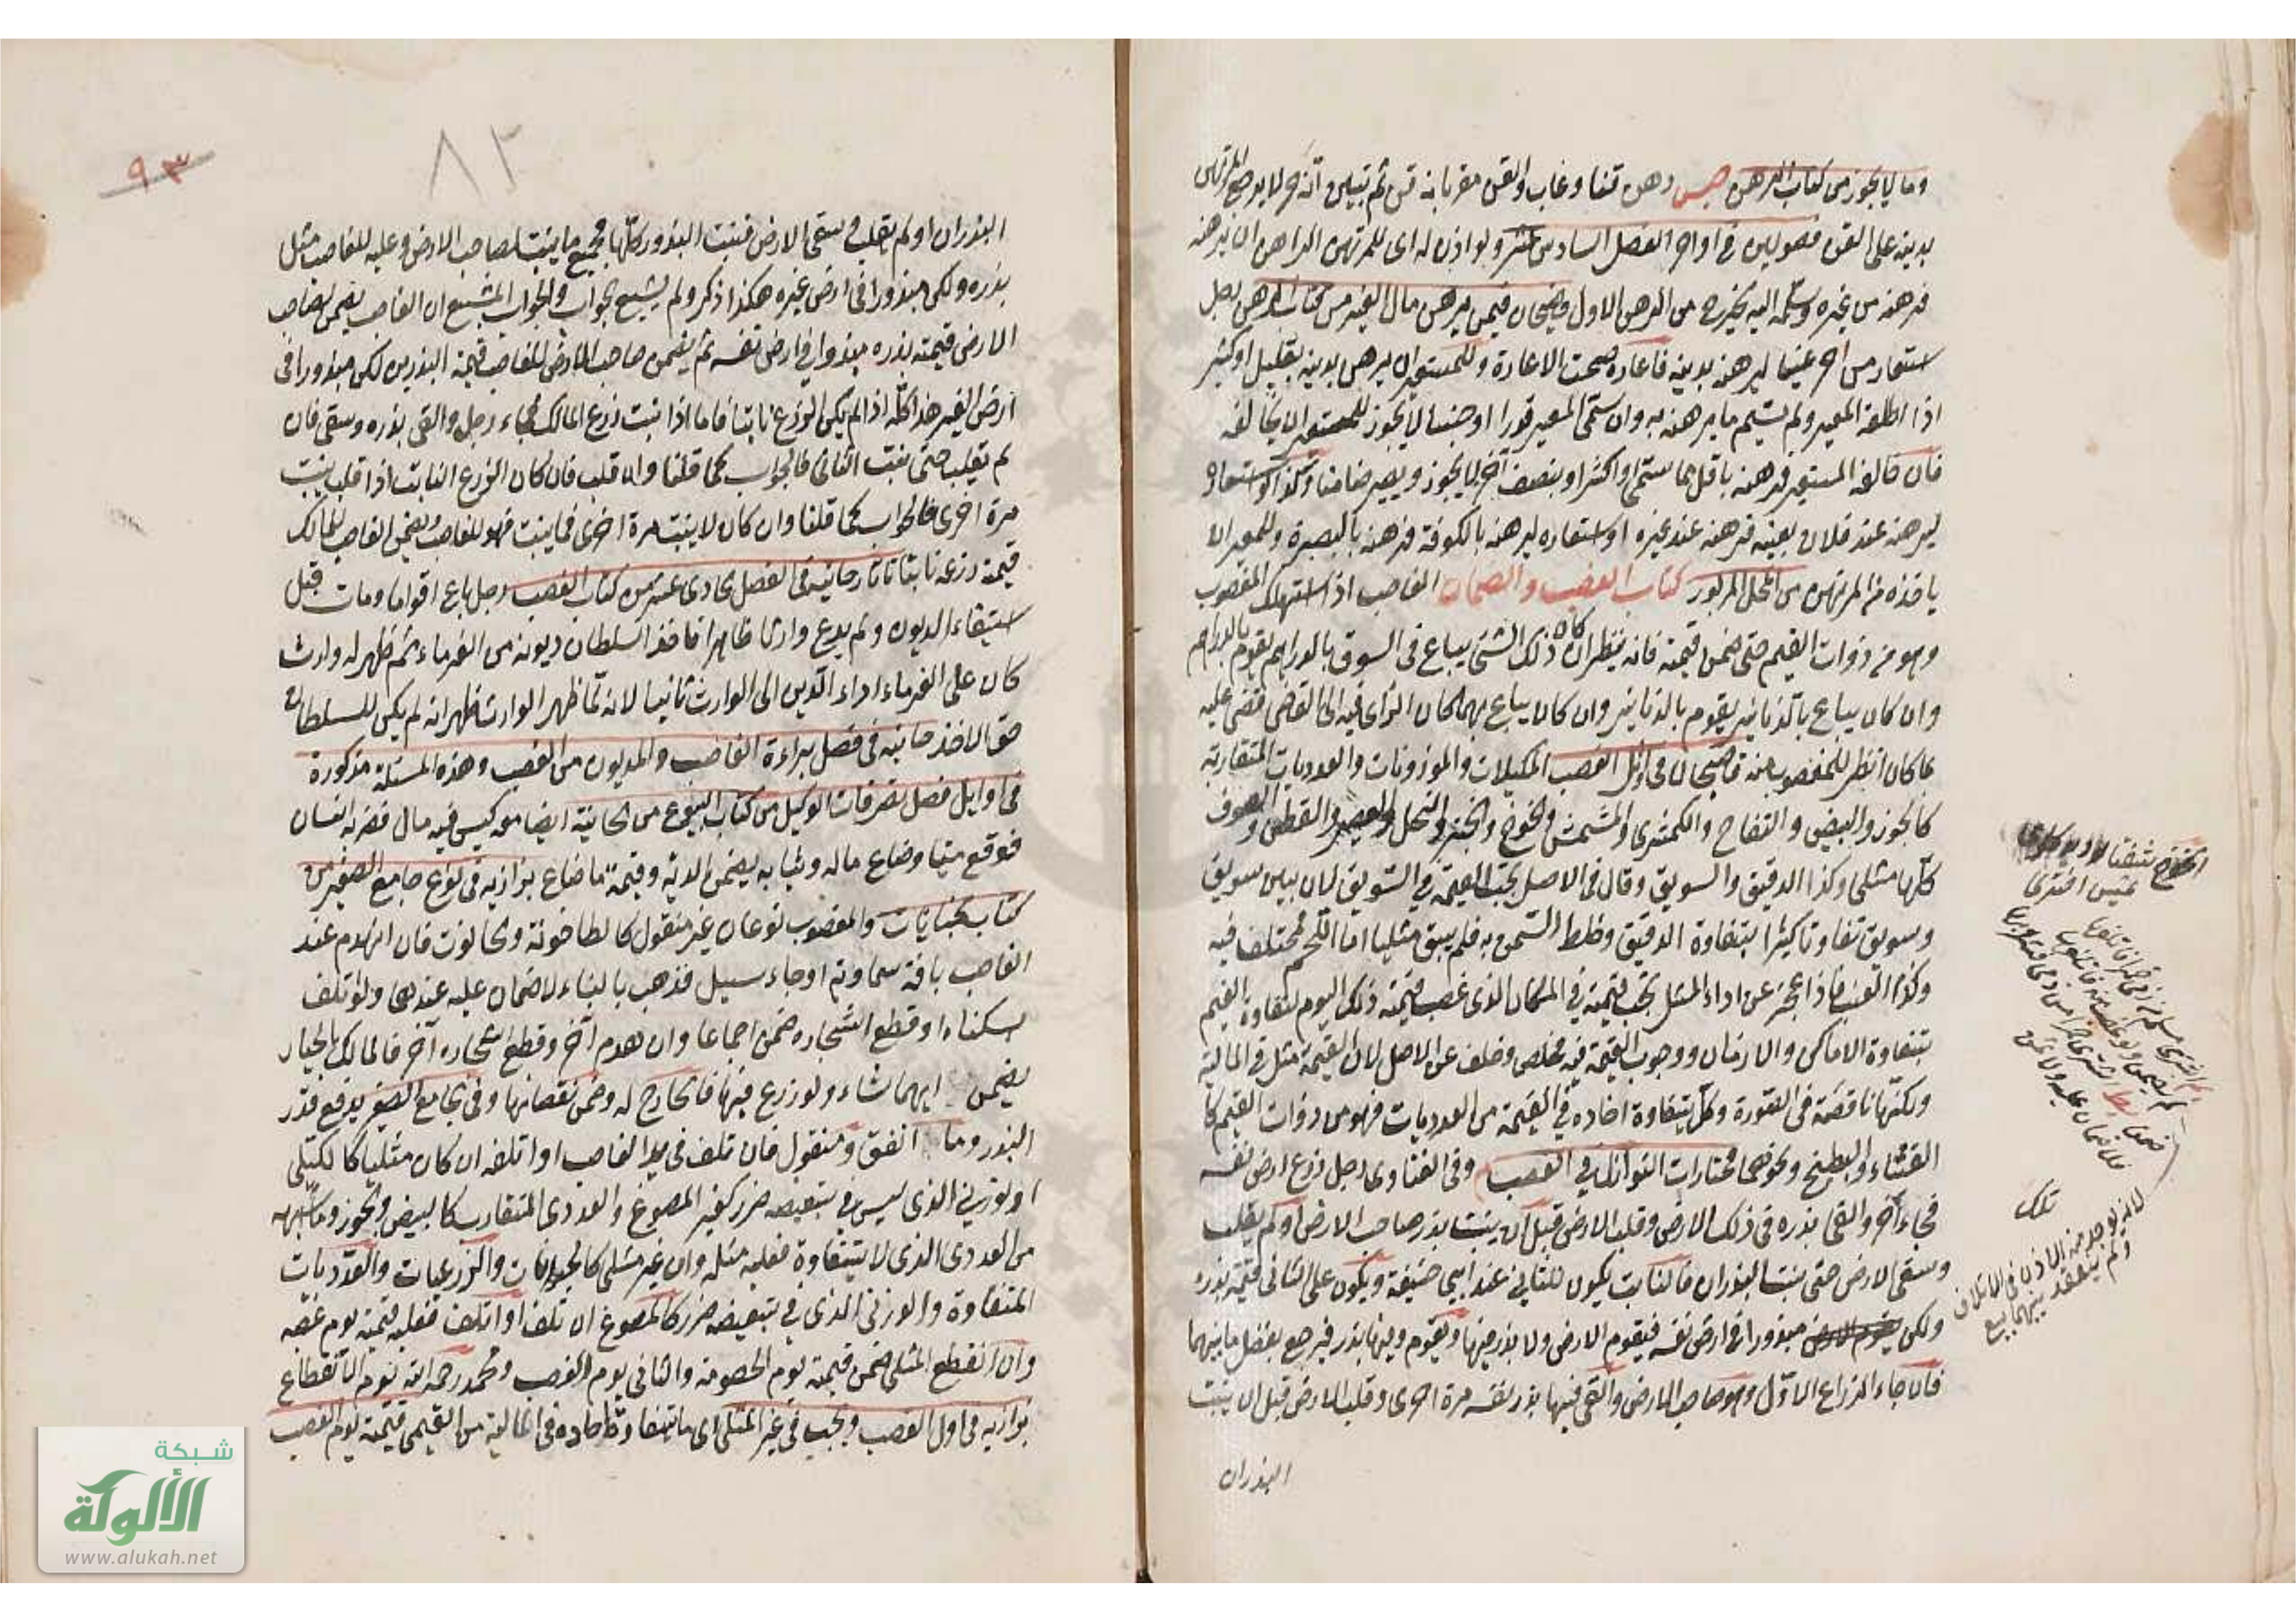 وما لا يجوز من كتاب الرهن رهن قنا وغاب والقن مقر بانه قن ثم تبين انه حر لا يرجع المرتهن
بدينه على القن فصولين في اواخر الفصل السادس عشر ولو اذن له اي للمرتهن الراهن ان يرهنه
فرهنه من غيره وسلمه اليه يخرج من الرهن الاول فيمن يرهن مال الغير من كتاب الرهن رجل
استعار من اخر عينا ليرهنه بدينه فاعاره صحت الاعارة وللمستعير ان يرهن بدينه بقليل او كثير
اذا اطلقه المعير ولم يسم ما يرهنه به وان سمى المعير قدرا او جنسا لا يجوز للمستعير ان يخالفه
فان خالف المستعير فرهنه باقل مما سمى او اكثر او بصنف آخر لا يجوز ويصير ضامنا وكذا لو استعار
ليرهنه عند فلان بعينه فرهنه عند غيره او استعاره ليرهنه بالكوفة فرهنه بالبصرة وللمعير ان
ياخذه من المرتهن من المحل المزبور كتاب الغصب والضمان الغاصب اذا استهلك المغصوب
وهو من ذوات القيم حتى ضمن قيمته فانه ينظر ان كان ذلك الشئ يباع في السوق بالدراهم يقوم بالدراهم
وان كان يباع بالدنانير يقوم بالدنانير وان كان يباع بهما كان الراى فيه الى القاضي فقضى عليه
بما كان انظر للمغصوب منه في اوائل الغصب المكيلات والموزونات والعدديات المتقاربة
كالجوز والبيض والتفاح والكمثرى والمشمش والخوخ والخبز والنحل والعصير والقطن والصوف
كلها مثلي وكذا الدقيق والسويق وقال في الاصل يجب القيمة في السويق لان بين سويق
وسويق تفاوتا كثيرا بتفاوة الدقيق وخلط السمن به فلم يبق مثليا اما اللحم فمختلف فيه
وكذا العنب فاذا عجز عن اداء المثل يجب قيمته في المكان الذى غصب قيمته ذلك اليوم لتفاوة القيم
بتفاوة الاماكن والازمان ووجوب القيمة فيه مخلص وخلف عن الاصل لان القيمة مثل في المالية
ولكنها ناقصة في الصورة وكل يتفاوة احاده في القيمة من العدديات فهو من ذوات القيم كا
القثاء والبطيخ ونحوهما مختارات النوازل في الغصب وفي الفتاوى رجل زرع ارض نفسه
فجاء آخر والقى بذره في ذلك الارض وقلب الارض قبل ان ينبت بذر صاحب الارض او لم يقلب
وسقى الارض حتى بنت البذران فالنابت يكون للثاني عند ابي حنيفة ويكون على الثاني قيمة بذره
ولكن مبذورا في ارض نفسه فيقوم الارض ولا بذر فيها ويقوم وفيها بذر فيرجع بفضل ما بينهما
فان جاء الزراع الاول وهو صاحب الارض والقى فيها بذر نفسه مرة اخرى وقلب الارض قبل ان ينبت
البذران
تلك
لانه يوجد منه الاذن في الاتلاف
ولم ينعقد بينهما بيع
٩٣
٨٢
البذران او لم يقلب في سقى الارض فنبت البذور كلها فجميع ما ينبت لصاحب الارض وعليه للغاصب مثل
بذره ولكن مبذورا في ارض غيره هكذا ذكر ولم يشبع الجواب والجواب المشبع ان الغاصب يضمن لصاحب
الارض قيمته بذره مبذورا في ارض نفسه ثم يضمن صاحب الارض للغاصب قيمة البذرين لكن مبذورا في
ارض الغير هذا كله اذا لم يكن الزرع نابتا فاما اذا نبت زرع المالك فجاء رجل والقى بذره وسقى فان
لم يقلب حتى نبت الثاني فالجواب كما قلنا وان قلب فان كان الزرع النابت اذا قلب ينبت
مرة اخرى فالجواب كما قلنا وان كان لا ينبت مرة اخرى فما ينبت فهو للغاصب ويضمن الغاصب للمالك
قيمة زرعه نابتا تاتارخانيه في الفصل الحادى عشر من كتاب الغصب رجل باع اقواما ومات قبل
استيفاء الديون ولم يدع وارثا ظاهرا فاخذ السلطان ديونه من الغرماء ثم ظهر له وارث
كان على الغرماء اداء الدين الى الوارث ثانيا لانه لما ظهر الوارث ظهر انه لم يكن للسلطان
حق الاخذ خانيه في فصل براءة الغاصب والمديون من الغصب وهذه المسئلة مذكورة
في اوايل فصل تصرفات الوكيل من كتاب البيوع من الخانية ايضا معه كيس فيه مال فضربه انسان
فوقع ميتا وضاع ماله وثيابه يضمن الدية وقيمة ما ضاع بزازيه في نوع جامع الصغير من
كتاب الجنايات والمغصوب نوعان غير منقول كالطاحونة والحانوت فان انهدم عند
الغاصب بافة سماوية او جاء سيل فذهب بالبناء لا ضمان عليه عندهما ولو تلف
بسكناه او قطع اشجاره ضمن اجماعا وان هدم آخر وقطع اشجاره آخر فالمالك بالخيار
يضمن ايهما شاء ولو زرع فيها فالخارج له وضمن نقصانها وفي الجامع الصغير يدفع قدر
البذر وما انفق ومنقول فان تلف في يد الغاصب او اتلفه ان كان مثليا كالكيلى
او لوزني الذى ليس في تبعيضه ضرر كغير المصوغ والعددى المتقارب كالبيض والجوز وما اشبهه
من العددى الذى لا يتفاوة فعليه مثله وان غير مثلي كالحيوانات والزرعيات والعدديات
المتفاوة والوزنى الذى في تبعيضه ضرر كالمصوغ ان تلف او اتلف فعليه قيمته يوم غصبه
وان انقطع المثلي ضمن قيمته يوم الخصومة والثاني يوم الغصب ومحمد رحمه الله يوم الانقطاع
بزازيه في اول الغصب ويجب في غير المثلي اى ما يتفاوت احاده في المالية من القيمي قيمته يوم الغصب
شبكة
الألوكة
www.alukah.net